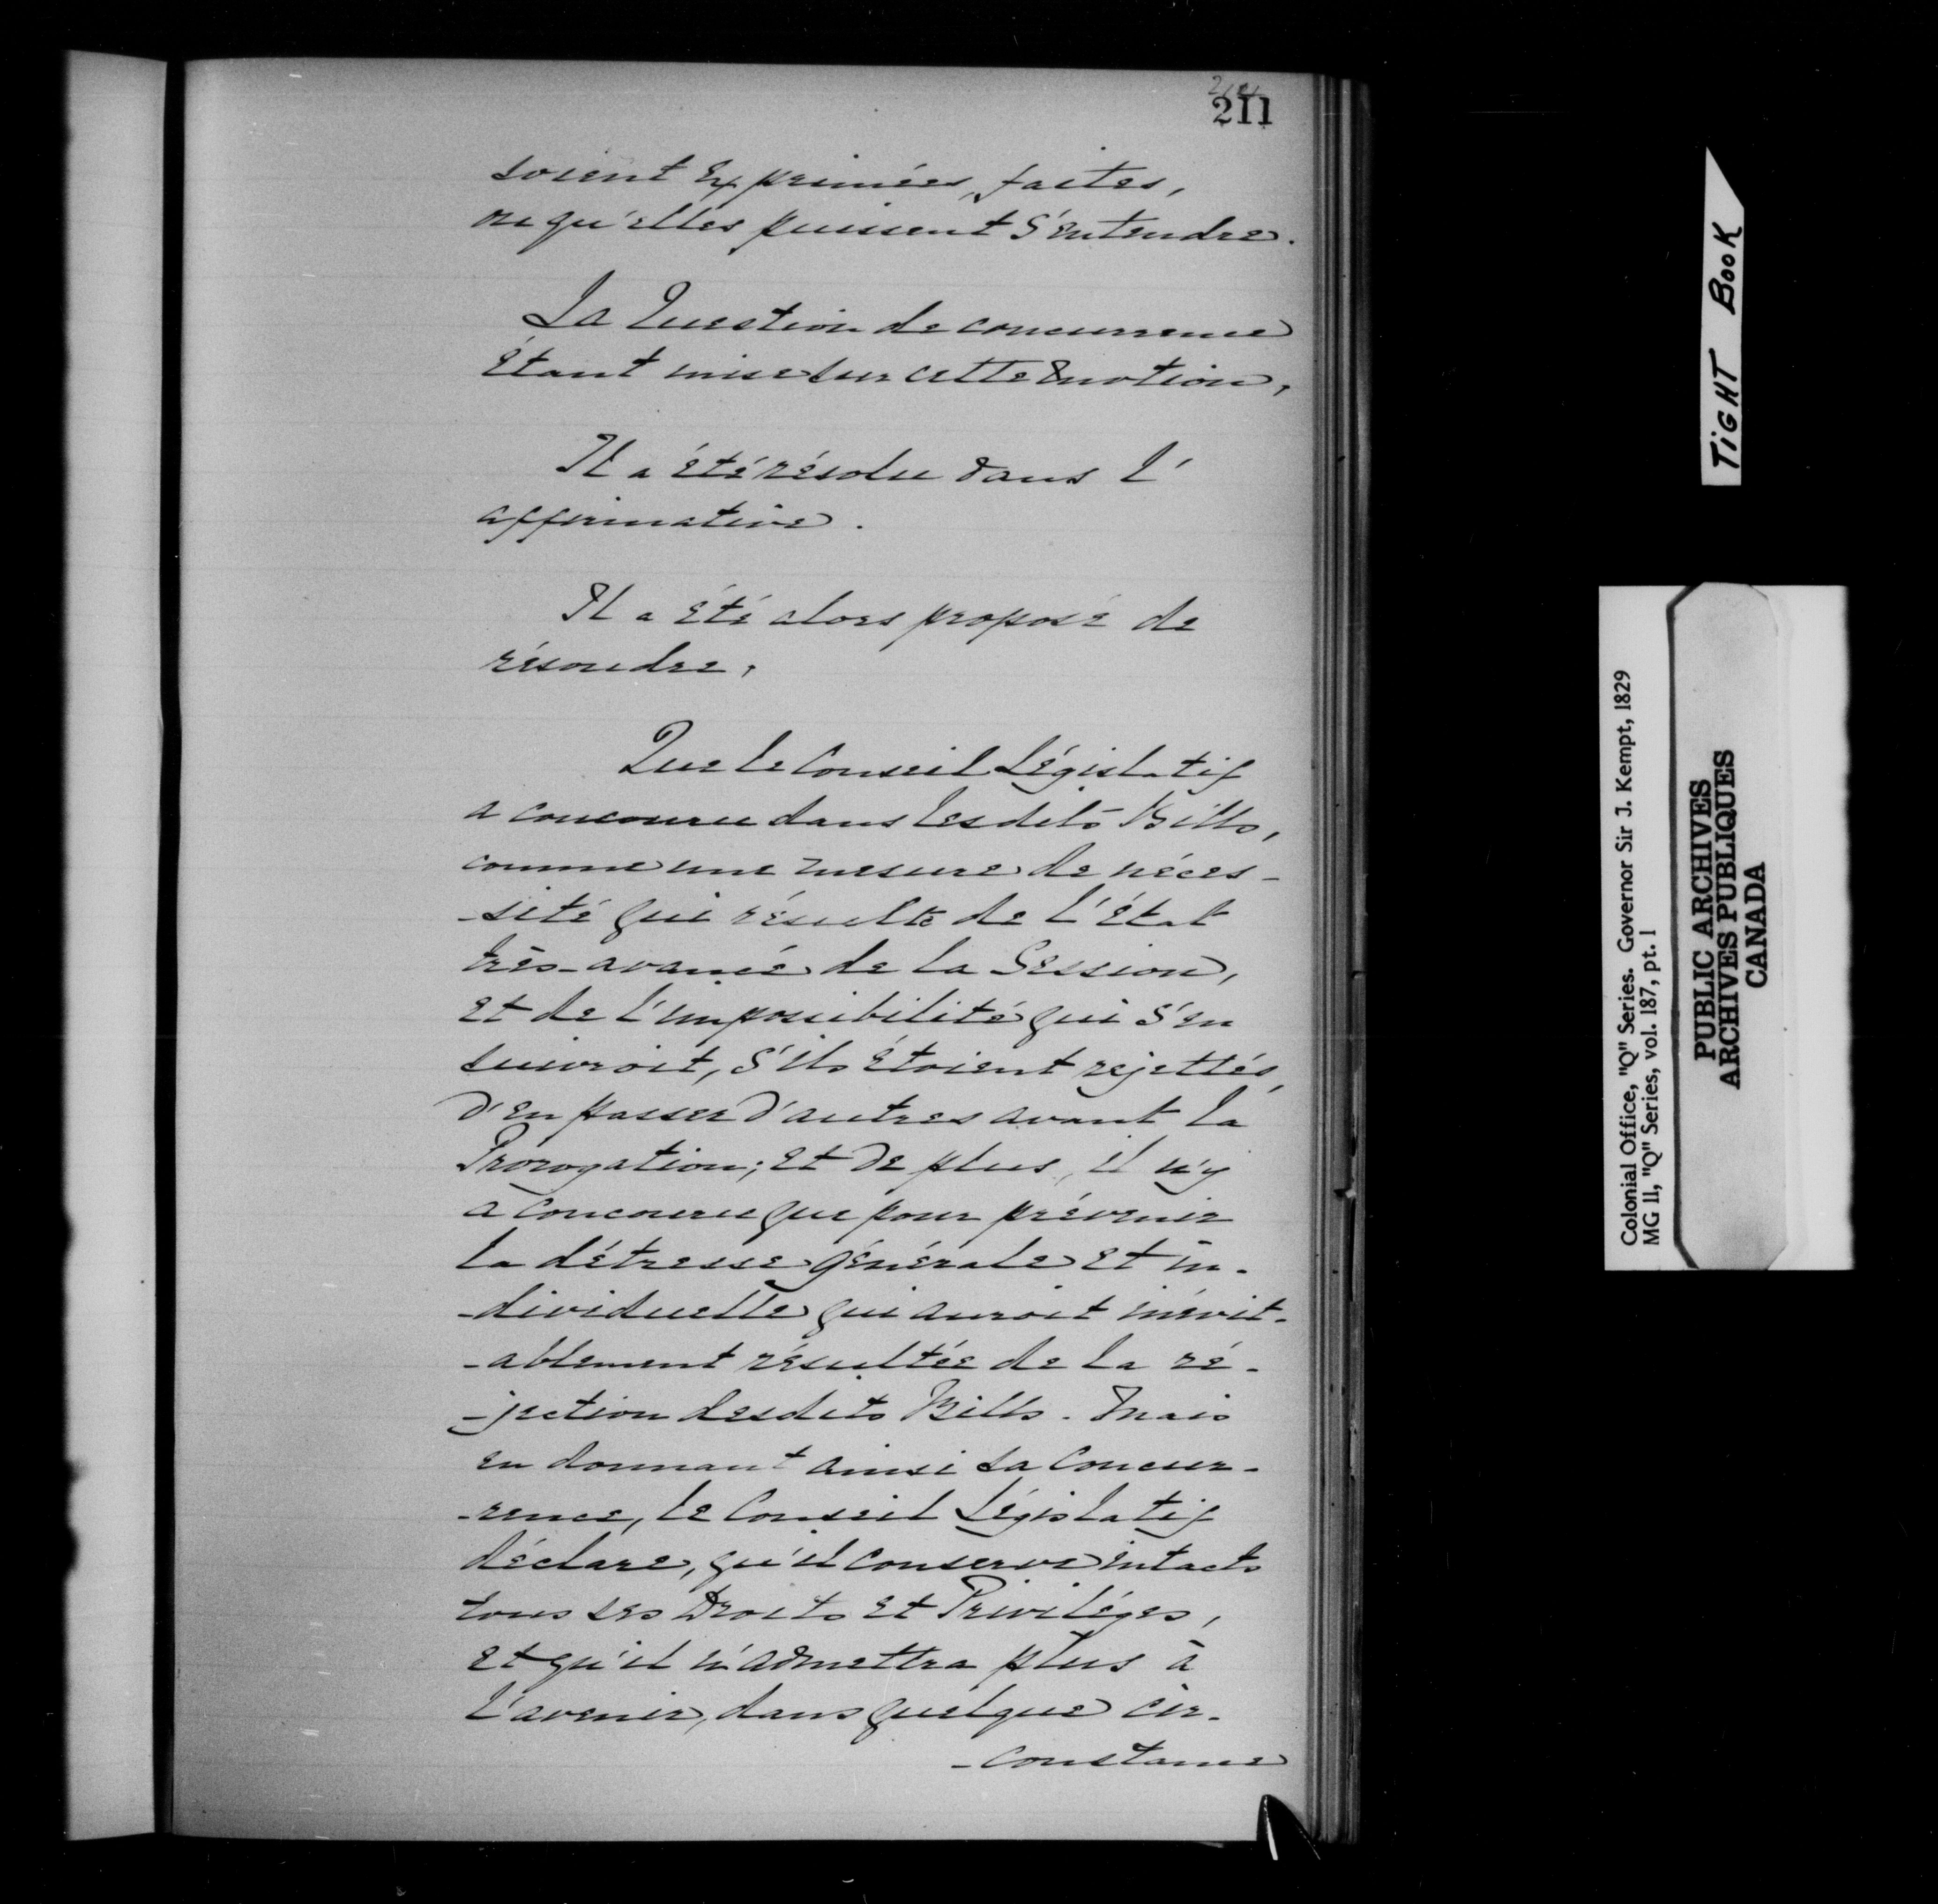 211
soient exprimées, faites,
ou qu'elles puissent s'entendre.
La Question de concurrence
étant mise sur cette motion,
Il a été résolu dans l'
affirmative.
Il a été alors proposé de
résoudre,
Que le Conseil Législatif
a concouru dans lesdits Bills,
comme une mesure de néces-
-sité qui résulte de l'état
très-avancé de la Session,
et de l'impossibilité qui s'en
suivroit, s'ils étoient rejettés,
d'en passer d'autres avant la
Prorogation; et de plus, il n'y
a concouru que pour prévenir
la détresse générale et in-
-dividuelle qui auroit inévit-
-ablement résultée de la ré-
-jection desdits Bills. Mais
en donnant ainsi sa concur-
-rence, le Conseil Législatif
déclare, qu'il conserve intacts
tous ses Droits et Privilèges,
et qu'il n'admettra plus à
l'avenir, dans quelque cir-
-constance
TiGHT BooK
Colonial Office, "Q" Series. Governor Sir J. Kempt, 1829
MG 11, "Q" Series, vol. 187, pt. 1
PUBLIC ARCHIVES
ARCHIVES PUBLIQUES
CANADA